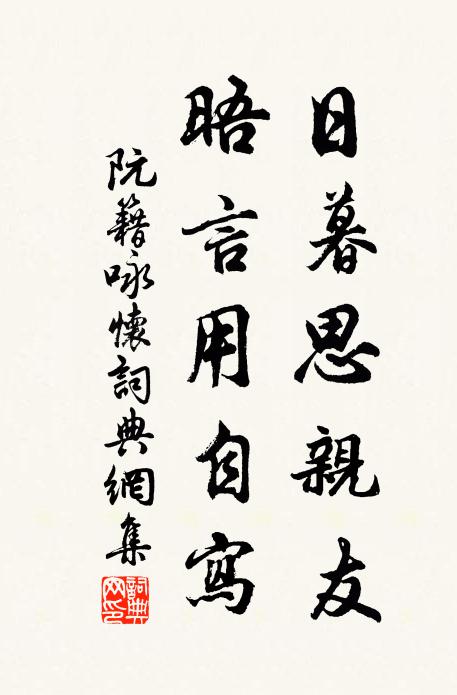 日暮思親友
晤言用自寫
阮籍咏懷詞典網集
詞典網印